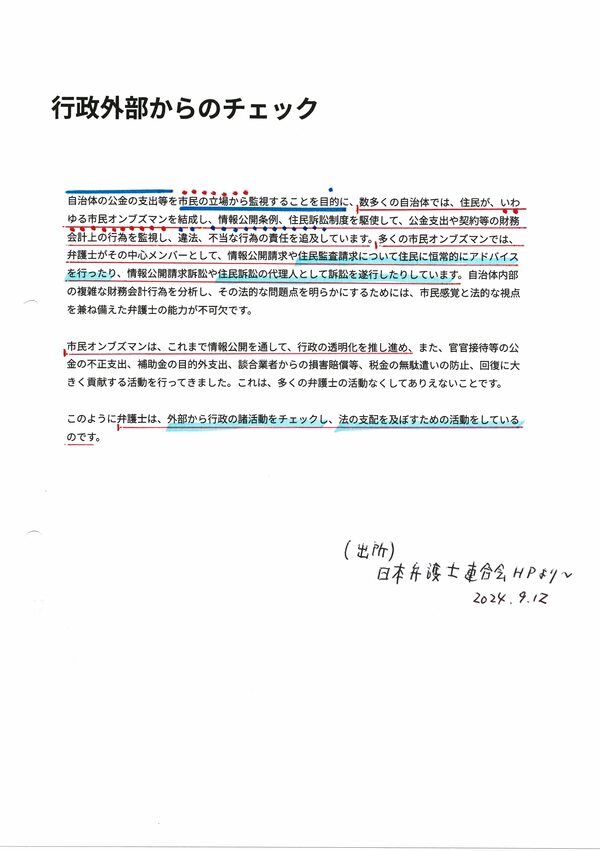 行政外部からのチェック
自治体の公金の支出等を市民の立場から監視することを目的に、数多くの自治体では、住民が、いわ
ゆる市民オンブズマンを結成し、情報公開条例、住民訴訟制度を駆使して、公金支出や契約等の財務
会計上の行為を監視し、違法、不当な行為の責任を追及しています。多くの市民オンブズマンでは、
弁護士がその中心メンバーとして、情報公開請求や住民監査請求について住民に恒常的にアドバイス
を行ったり、情報公開請求訴訟や住民訴訟の代理人として訴訟を遂行したりしています。自治体内部
の複雑な財務会計行為を分析し、その法的な問題点を明らかにするためには、市民感覚と法的な視点
を兼ね備えた弁護士の能力が不可欠です。
市民オンブズマンは、これまで情報公開を通して、行政の透明化を推し進め、また、官官接待等の公
金の不正支出、補助金の目的外支出、談合業者からの損害賠償等、税金の無駄遣いの防止、回復に大
きく貢献する活動を行ってきました。これは、多くの弁護士の活動なくしてありえないことです。
このように弁護士は、外部から行政の諸活動をチェックし、法の支配を及ぼすための活動をしている
のです。
(出所)
日本弁護士連合会HPより〜
2024.9.12